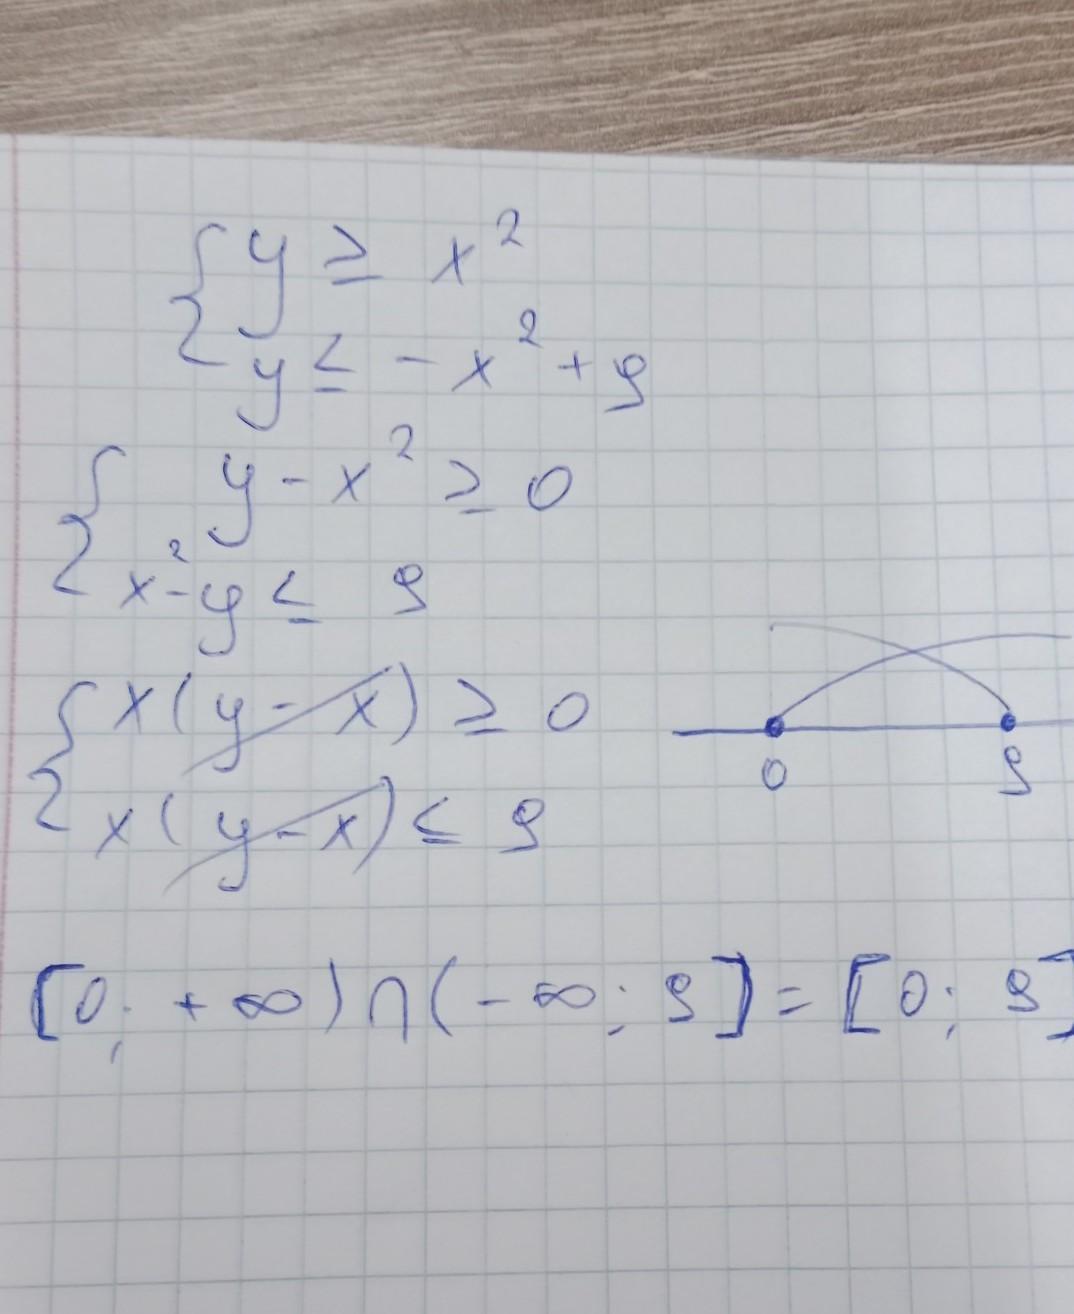 y ≥ x²
y ≤ - x² + 9
y - x² ≥ 0
x² - y ≤ 9
x(y - x) ≥ 0
x(y - x) ≤ 9
0 9
[0; +∞) ∩ (-∞; 9] = [0; 9]